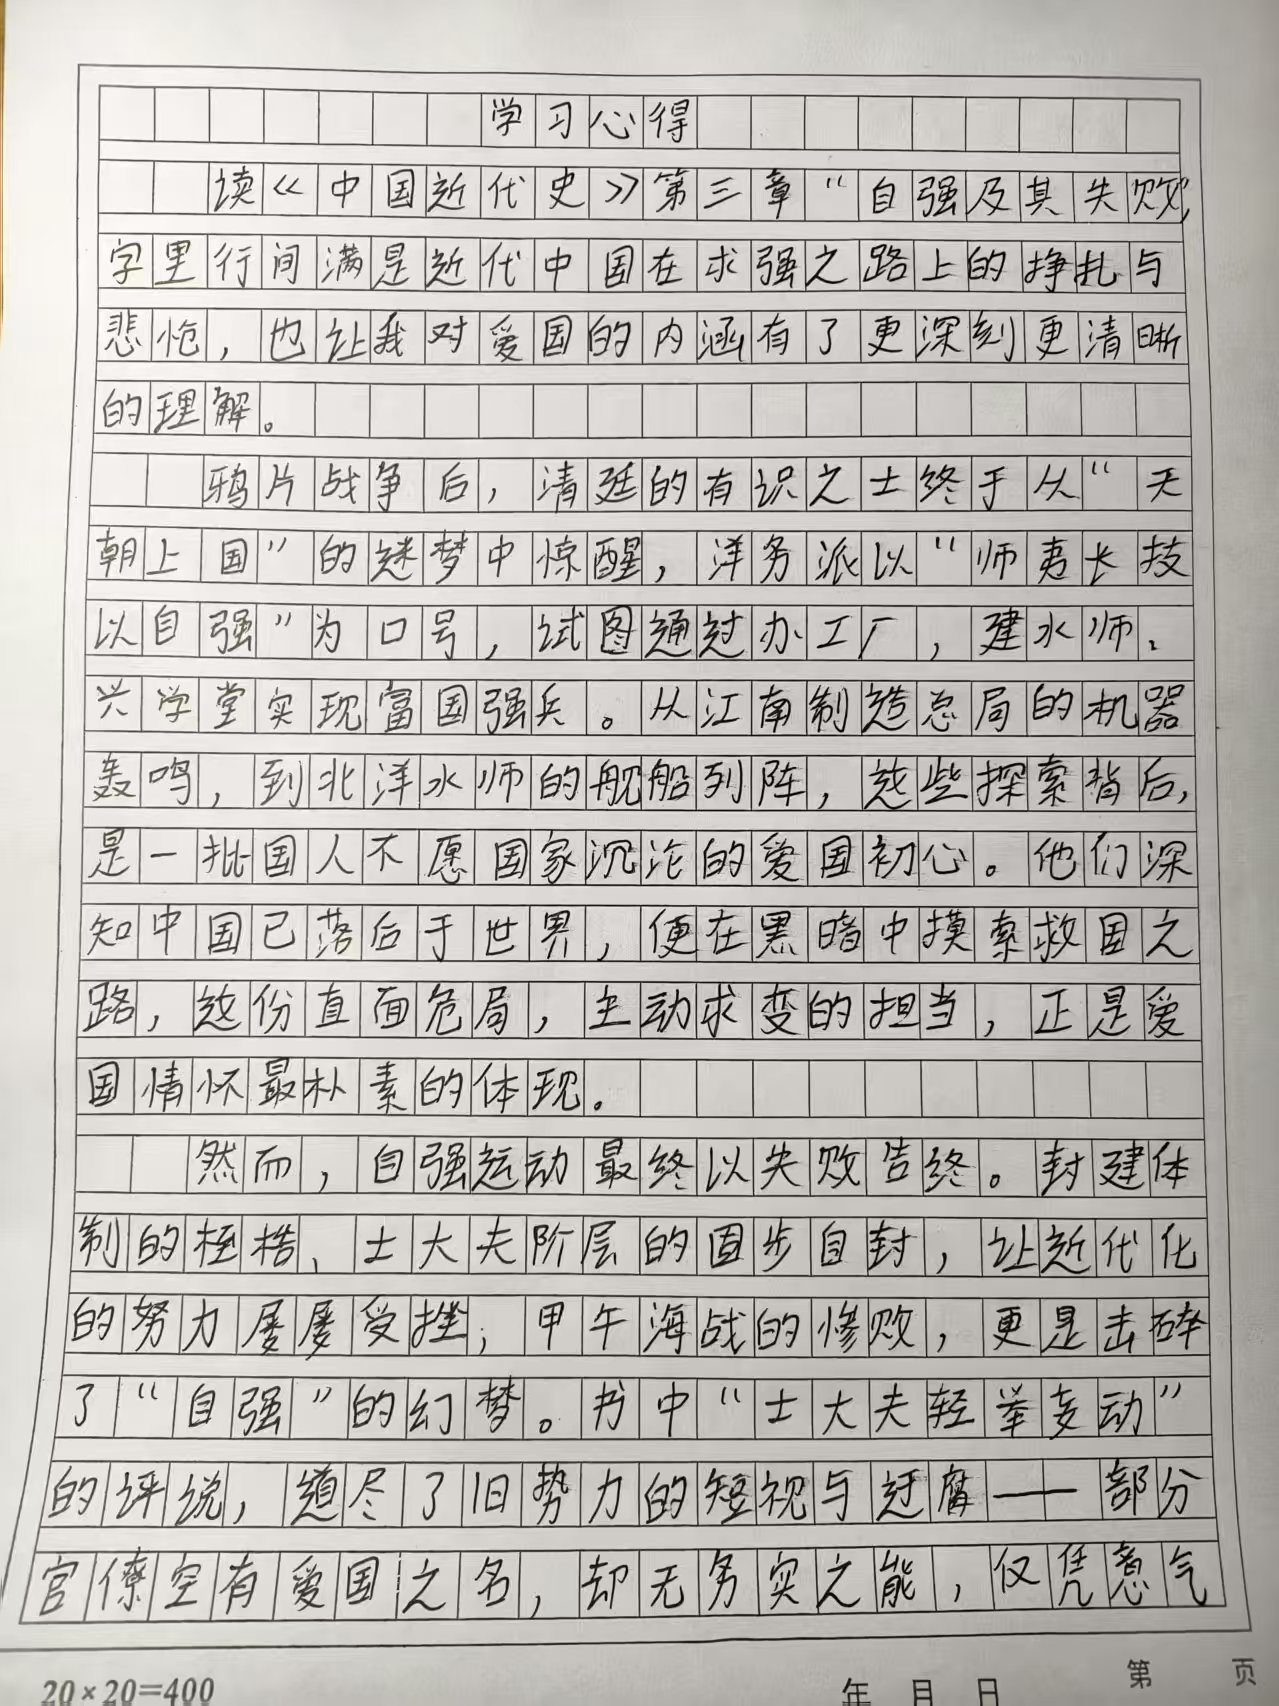 学习心得
读《中国近代史》第三章“自强及其失败”,
字里行间满是近代中国在求强之路上的挣扎与
悲怆，也让我对爱国的内涵有了更深刻更清晰
的理解。
鸦片战争后，清廷的有识之士终于从“天
朝上国”的迷梦中惊醒，洋务派以“师夷长技
以自强”为口号，试图通过办工厂，建水师、
兴学堂实现富国强兵。从江南制造总局的机器
轰鸣，到北洋水师的舰船列阵，这些探索背后，
是一批国人不愿国家沉沦的爱国初心。他们深
知中国已落后于世界，便在黑暗中摸索救国之
路，这份直面危局，主动求变的担当，正是爱
国情怀最朴素的体现。
然而，自强运动最终以失败告终。封建体
制的桎梏、士大夫阶层的固步自封，让近代化
的努力屡屡受挫；甲午海战的惨败，更是击碎
了“自强”的幻梦。书中“士大夫轻举妄动”
的评说，道尽了旧势力的短视与迂腐——部分
官僚空有爱国之名，却无务实之能，仅凭意气
20×20=400
年 月 日
第 页